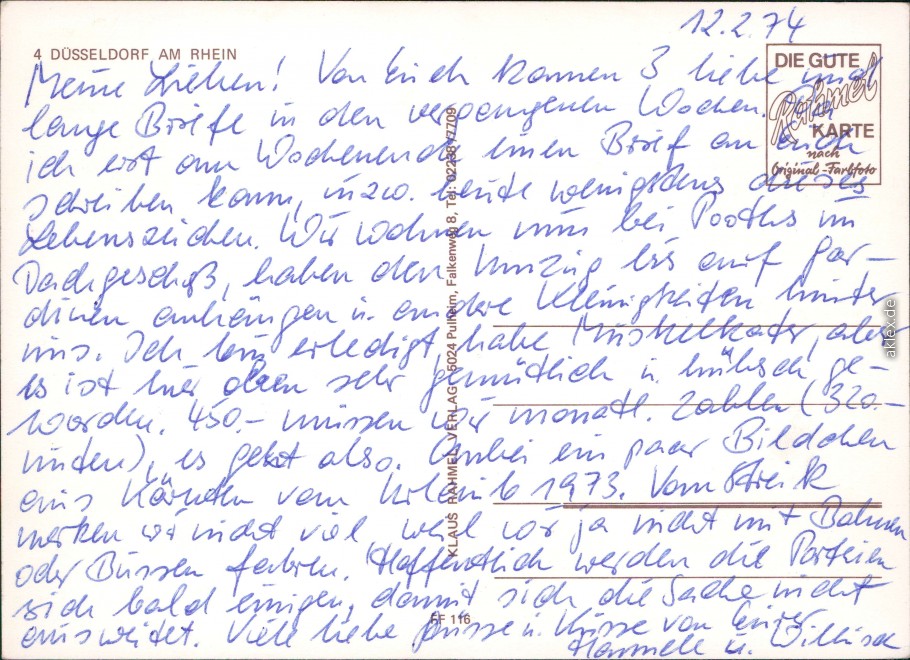 12.2.74
4 DÜSSELDORF AM RHEIN
DIE GUTE
Rahmel
KARTE
nach
Original-Farbfoto
Meine Lieben! Von Euch kamen 3 liebe und
lange Briefe in den vergangenen Wochen. Da
ich erst am Wochenende einen Brief an Euch
schreiben kann, inzw. heute wenigstens dieses
Lebenszeichen. Wir wohnen nun bei Pooths im
Dachgeschoß, haben den Umzug bis auf Gar-
dinen anhängen u. andere Kleinigkeiten hinter
uns. Ich bin erledigt, habe Muskelkater, aber
es ist hier oben sehr gemütlich u. hübsch ge-
worden. 450.- müssen wir monatl. zahlen (320.-
unten), es geht also. Anbei ein paar Bildchen
aus Kärnten vom Urlaub 1973. Vom Streik
merken wir nicht viel, weil wir ja nicht mit Bahnen
oder Bussen fahren. Hoffentlich werden die Parteien
sich bald einigen, damit sich die Sache nicht
ausweitet. Viele liebe Grüsse u. Küsse von Eurer
Hannele u.
KLAUS RAHMEL VERLAG, 5024 Pulheim, Falkenweg 8, Tel: 02238 / 7709
FF 116
akpool.de